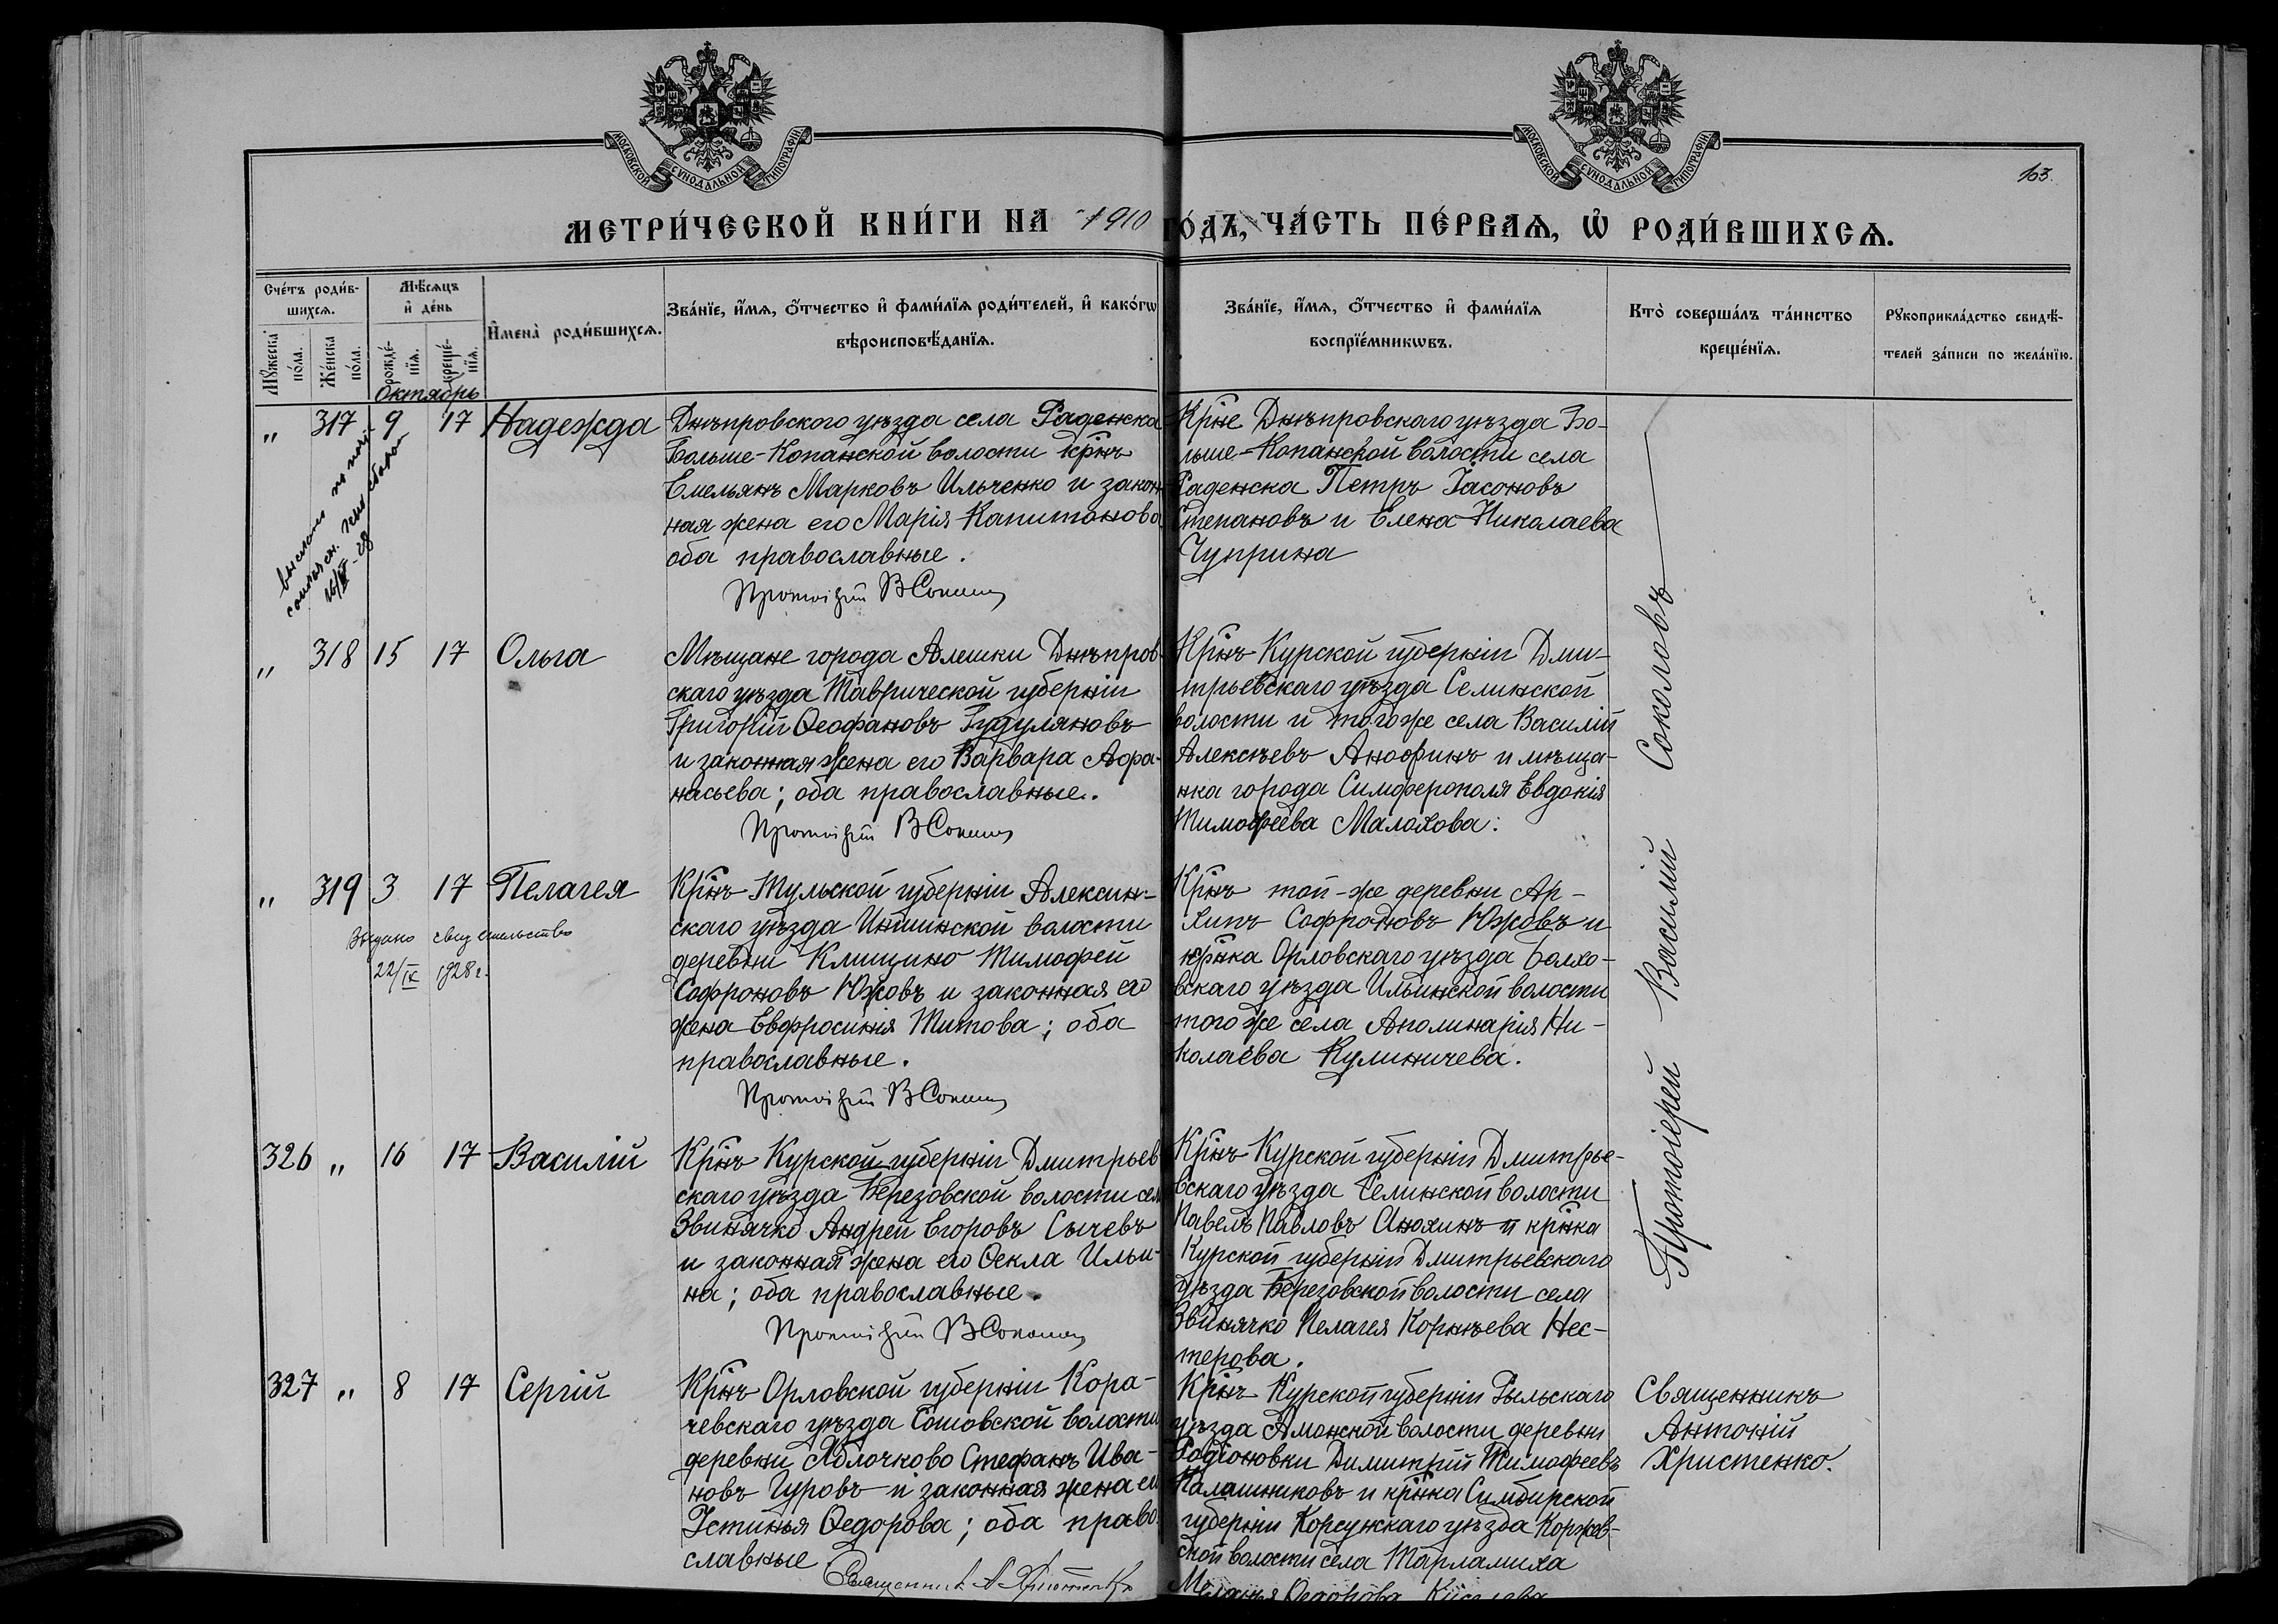 МОСКОВСКОЙ СѴНОДАЛЬНОЙ ТИПОГРАФІИ
МОСКОВСКОЙ СѴНОДАЛЬНОЙ ТИПОГРАФІИ
163.
МЕТРИ́ЧЕСКОЙ КНИ́ГИ НА 1910 ГО́ДЪ, ЧА́СТЬ ПЕ́РВАѦ, Ѡ҆ РОДИ́ВШИХСѦ.
Сче́тъ роди́в-
шихсѧ.
Мꙋ́жеска по́ла.
Же́нска по́ла.
Мѣ́сѧцъ
и҆ де́нь
рожде́-
нїѧ.
креще́-
нїѧ.
Октябрь
И҆мена̀ роди́вшихсѧ.
Зва́нїе, и҆́мѧ, ѻ҆́тчество и҆ фами́лїѧ роди́телей, и҆ како́гѡ
вѣроисповѣ́данїѧ.
Зва́нїе, и҆́мѧ, ѻ҆́тчество и҆ фами́лїѧ
воспрїе́мникѡвъ.
Кто̀ соверша́лъ та́инство
креще́нїѧ.
Рꙋкоприкла́дство свидѣ́-
телей за́писи по жела́нїю.
„ 317 9 17 Надежда
Днѣпровского уѣзда села Раденска
Больше-Копанской волости крнъ
Емельянъ Марковъ Ильченко и закон
ная жена его Марія Капитонова
оба православные.
Протоіерей В Соколовъ
Крне Днѣпровскаго уѣзда Бо-
льше-Копанской волости села
Раденска Петръ Іасоновъ
Степановъ и Елена Николаева
Чуприна
16/ -28
„ 318 15 17 Ольга
Мѣщане города Алешки Днѣпров-
скаго уѣзда Таврической губерніи
Григорій Ѳеофановъ Гудуляновъ
и законная жена его Варвара Афа-
насьева; оба православные.
Протоіерей В Соколовъ
Крнъ Курской губерніи Дми-
трьевскаго уѣзда Селинской
волости и того же села Василій
Алексѣевъ и мѣща-
нка города Симферополя Евдокія
Тимофеева Малахова.
„ 319 3 17 Пелагея
Выдано свидетельство
22/IX 1928 г.
Крнъ Тульской губерніи Алексин-
скаго уѣзда волости
деревни Клищино Тимофей
Софроновъ Южовъ и законная его
жена Евфросинія Титова; оба
православные.
Протоіерей В Соколовъ
Крнъ той-же деревни Ар-
хипъ Софроновъ Южовъ и
крнка Орловскаго уѣзда Болхо-
вскаго уѣзда Ильинской волости
того же села Аполинарія Ни-
колаева Кулиничева.
326 „ 16 17 Василій
Крнъ Курской губерніи Дмитрьев
скаго уѣзда Березовской волости сел
Звинячко Андрей Егоровъ Сычевъ
и законная жена его Ѳекла Ильи-
на; оба православные.
Протоіерей В Соколовъ
Крнъ Курской губерніи Дмитрье-
вскаго уѣзда Селинской волости
Павелъ Павловъ Анохинъ и крнка
Курской губерніи Дмитрьевскаго
уѣзда Березовской волости села
Звинячко Пелагея Корнѣева Нес-
терова.
Протоіерей Василій Соколовъ
327 „ 8 17 Сергій
Крнъ Орловской губерніи Кора-
чевскаго уѣзда волости
деревни Яблочково Стефанъ Ива-
новъ Гуровъ и законная жена его
Устинья Ѳедорова; оба право-
славные
Священник А Христенко
Крнъ Курской губерніи Рыльскаго
уѣзда Амонской волости деревни
Родіоновки Димитрій Тимофеевъ
Калашниковъ и крнка Симбирской
губерніи Корсунскаго уѣзда Коржев-
ской волости села Тарламиха
Меланья Ѳедорова Киселева
Священникъ
Антоній
Христенко.